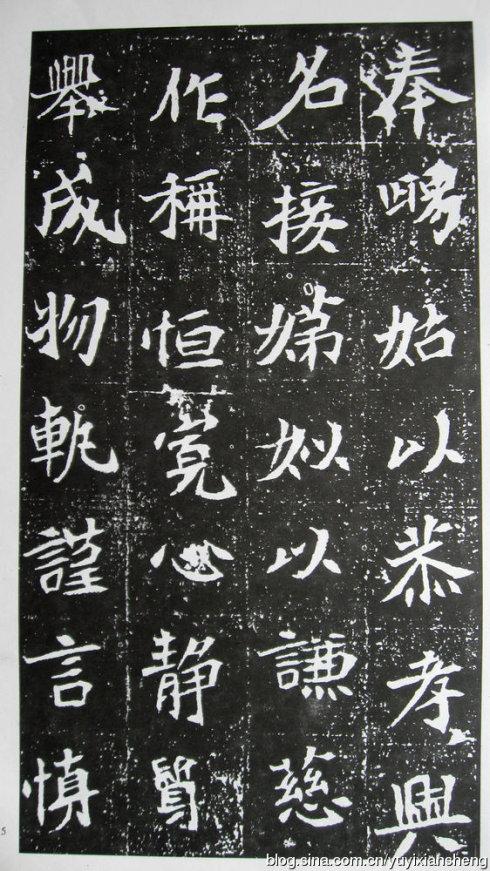 奉娉姑以恭孝興
名接娣姒以謙慈
作稱恒寬心静質
舉成物軌謹言慎
5
blog.sina.com.cn/yuyixiansheng